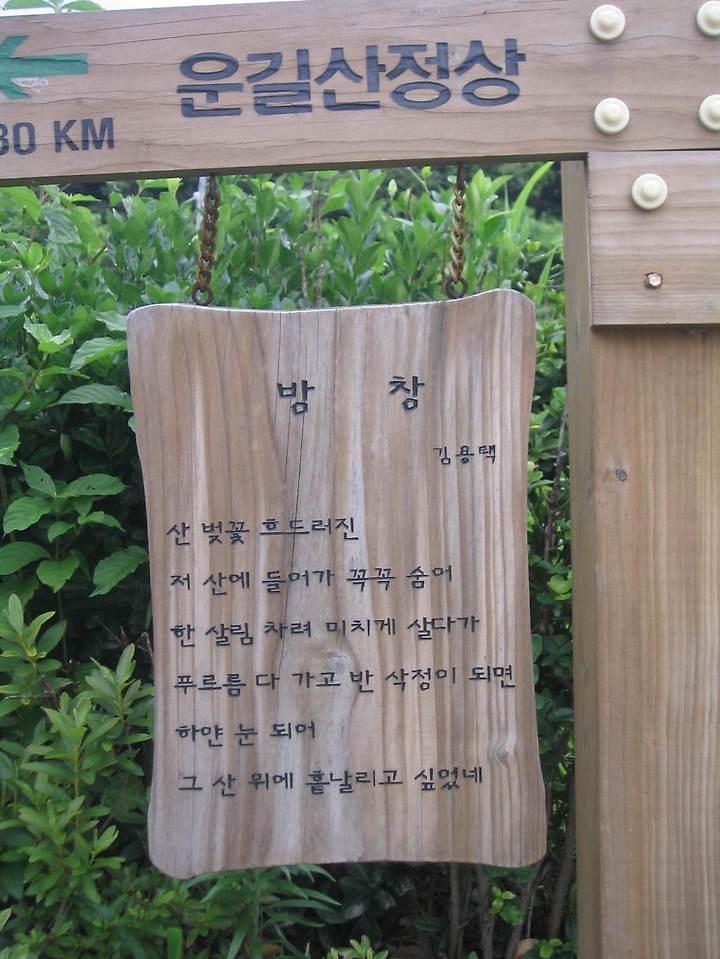 운길산정상
30 KM
방 창
김용택
산 벚꽃 흐드러진
저 산에 들어가 꼭꼭 숨어
한 살림 차려 미치게 살다가
푸르름 다 가고 반 삭정이 되면
하얀 눈 되어
그 산 위에 흩날리고 싶었네